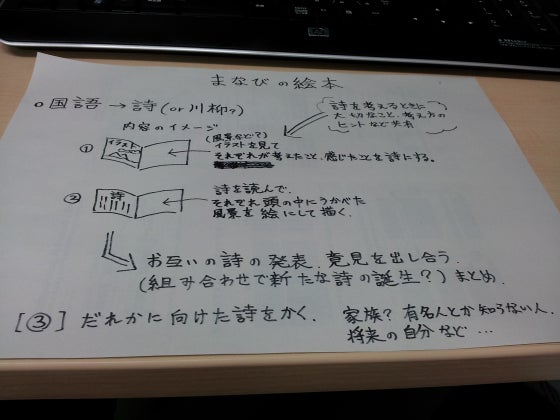 まなびの絵本
○国語→詩(or 川柳?)
詩を考えるときに
大切なこと、考え方の
ヒントなど共有
内容のイメージ
① イラスト
(風景など?)
イラストを見て
それぞれが考えたこと、感じたことを詩にする。
② 詩
詩を読んで、
それぞれ頭の中にうかべた
風景を絵にして描く。
お互いの詩の発表、意見を出し合う。
(組み合わせで新たな詩の誕生?)まとめ。
[③] だれかに向けた詩をかく.
家族? 有名人とか知らない人、
将来の自分など…
hp